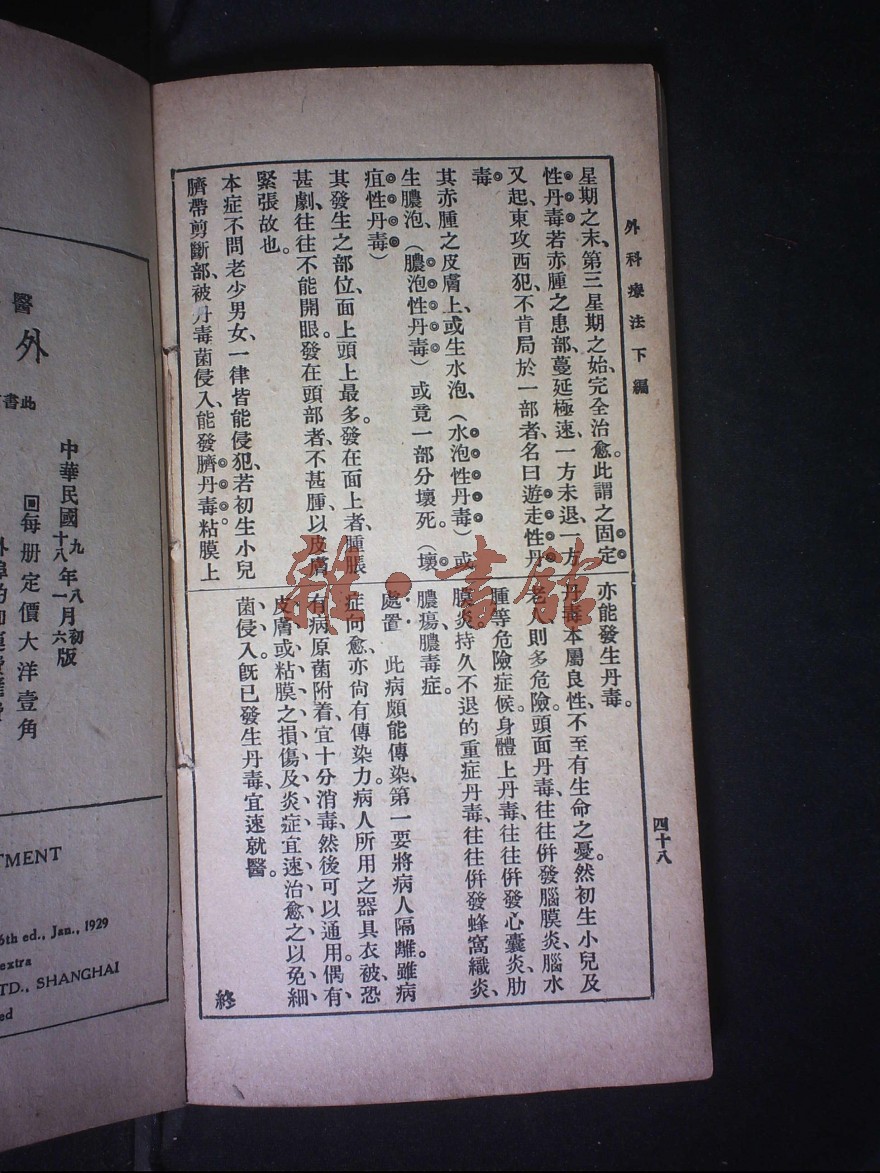 外科療法下編
星期之末、第三星期之始、完全治愈。此謂之固定
性丹毒、若赤腫之患部、蔓延極速、一方未退、一方
又起、東攻西犯、不肯局於一部者、名曰遊走性丹
毒
其赤腫之皮膚上、或生水泡、（水泡性丹毒）或
生膿泡、（膿泡性丹毒）或竟一部分壞死。（壞
疽性丹毒）
其發生之部位、面上頭上最多。發在面上者、腫脹
甚劇、往往不能開眼。發在頭部者、不甚腫、以皮膚
緊張故也。
本症不問老少男女、一律皆能侵犯、若初生小兒
臍帶剪斷部、被丹毒菌侵入、能發臍丹毒。粘膜上
亦能發生丹毒。
丹毒本屬良性、不至有生命之憂。然初生小兒及
老人則多危險。頭面丹毒、往往併發腦膜炎、腦水
腫等危險症候。身體上丹毒、往往併發心囊炎、肋
膜炎、持久不退的重症丹毒、往往併發蜂窩織炎、
膿瘍、膿毒症。
處置　此病頗能傳染、第一要將病人隔離。雖病
症向愈、亦尙有傳染力。病人所用之器具衣被、恐
有病原菌附着、宜十分消毒、然後可以通用。偶有
皮膚或粘膜之損傷及炎症、宜速治愈之、以免細
菌侵入。旣已發生丹毒、宜速就醫。
終
四十八
雜·書館
醫
外
此書
中華民國九年八月初版
十八年一月六版
回每册定價大洋壹角
TMENT
6th ed., Jan., 1929
extra
TD., SHANGHAI
ed